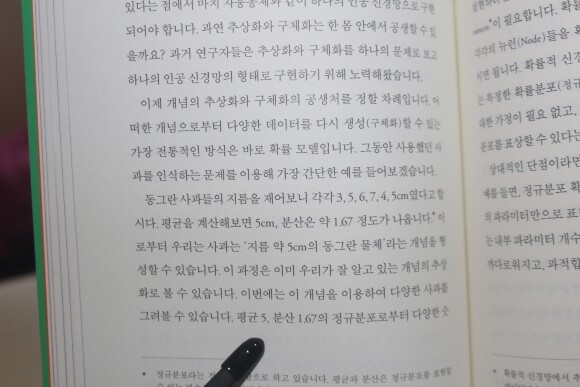 있다는 점에서 마치 자동동체와 같이 하나의 인공 신경망으로 구현
되어야 합니다. 과연 추상화와 구체화는 한 몸 안에서 공생할 수 있
을까요? 과거 연구자들은 추상화와 구체화를 하나의 문제로 보고
하나의 인공 신경망의 형태로 구현하기 위해 노력해왔습니다.
이제 개념의 추상화와 구체화의 공생처를 정할 차례입니다. 어
떠한 개념으로부터 다양한 데이터를 다시 생성(구체화)할 수 있는
가장 전통적인 방식은 바로 확률 모델입니다. 그동안 사용했던 사
과를 인식하는 문제를 이용해 가장 간단한 예를 들어보겠습니다.
동그란 사과들의 지름을 재어보니 각각 3, 5, 6, 7, 4, 5cm였다고 합
시다. 평균을 계산해보면 5cm, 분산은 약 1.67 정도가 나옵니다.* 이
로부터 우리는 사과는 ‘지름 약 5cm의 동그란 물체’라는 개념을 형
성할 수 있습니다. 이 과정은 이미 우리가 잘 알고 있는 개념의 추상
화로 볼 수 있습니다. 이번에는 이 개념을 이용하여 다양한 사과를
그려볼 수 있습니다. 평균 5, 분산 1.67의 정규분포로부터 다양한 숫
* 정규분포라는 으로 하고 있습니다. 평균과 분산은 정규분포를 표현할
실현하이
이 필요합니다. 확률
각각의 뉴런(Node)들을 확
시면 됩니다. 확률적 신경
는 특정한 확률분포(정규
대한 가정이 필요 없고,
분포를 표상할 수 있다는
상대적인 단점이라면
예를 들면, 정규분포 확
의 파라미터만으로 표현
는 내부 파라미터 개수
까다로워지고, 과적합
* 확률적 신경망에서 추